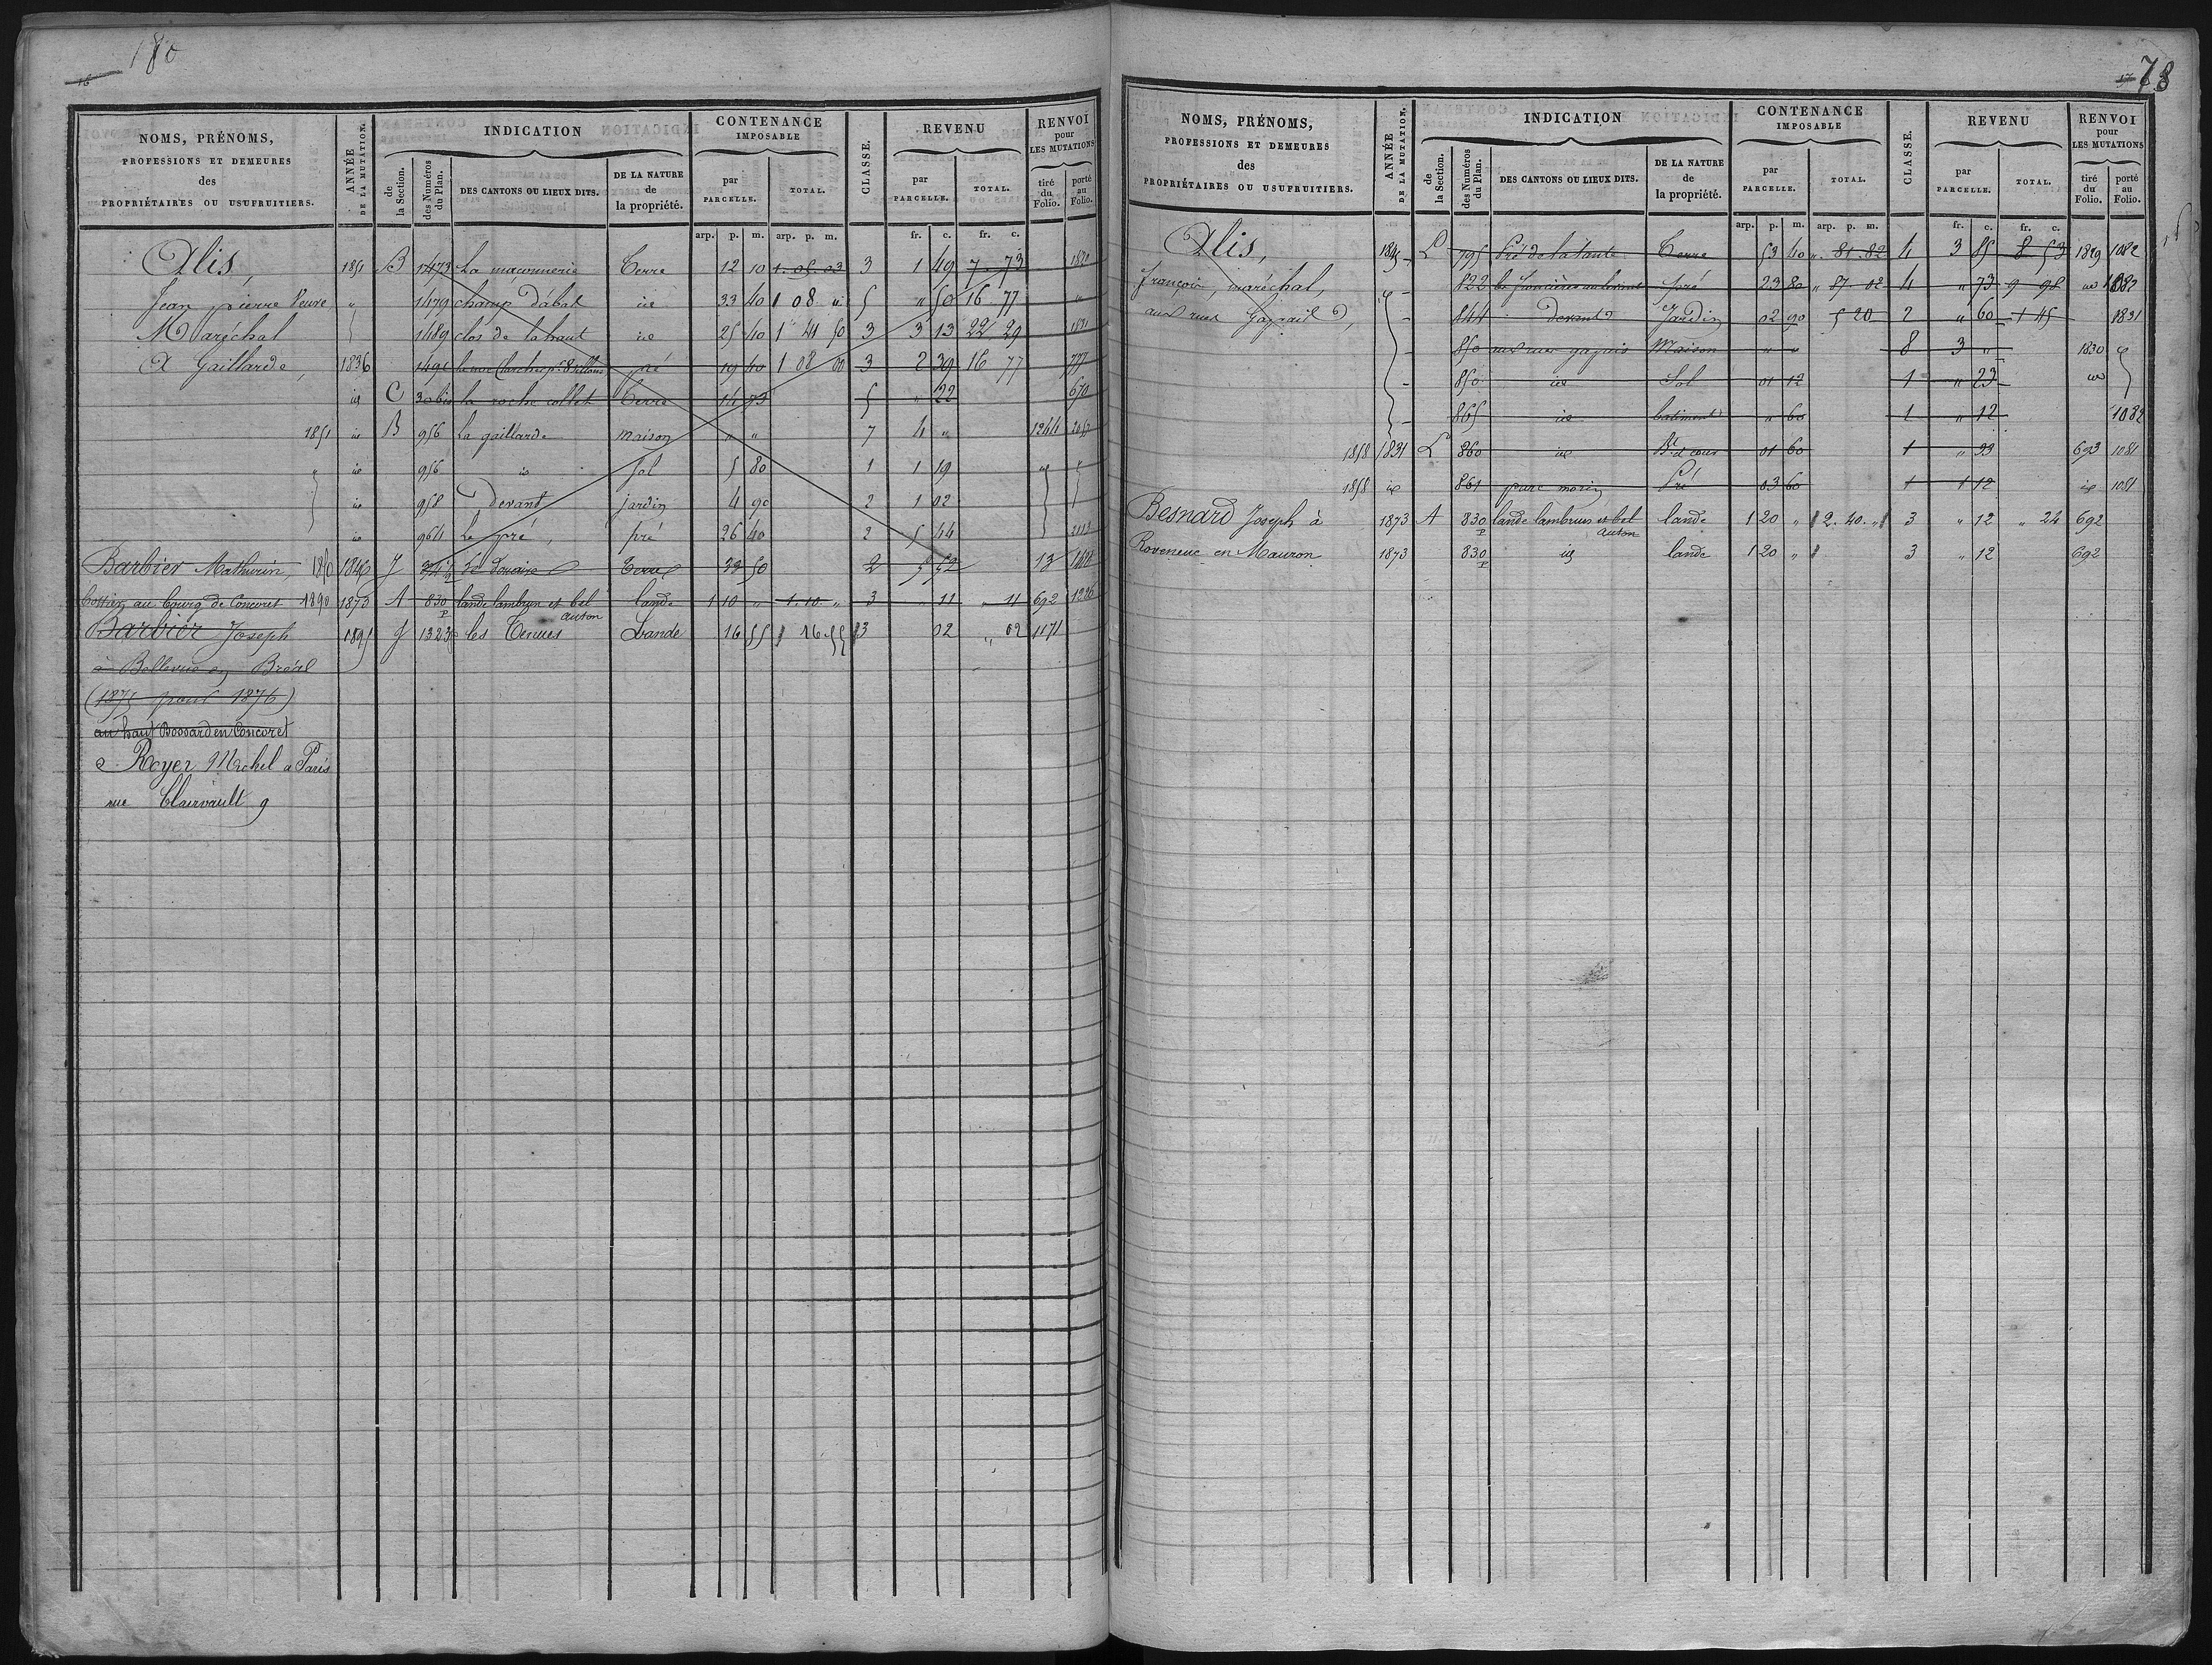 180
16
NOMS, PRÉNOMS,
PROFESSIONS ET DEMEURES
des
PROPRIÉTAIRES OU USUFRUITIERS.
ANNÉE
DE LA MUTATION.
INDICATION
de la Section.
des Numéros du Plan.
DES CANTONS OU LIEUX DITS.
DE LA NATURE de la propriété.
CONTENANCE
IMPOSABLE
par PARCELLE.
TOTAL.
CLASSE.
REVENU
par PARCELLE.
TOTAL.
RENVOI
pour
LES MUTATIONS
tiré du Folio.
porté au Folio.
arp. p. m. arp. p. m. fr. c. fr. c.
Alis, 1851 B 1473 La maconnerie Terre 12 10 1. 05. 03 3 1 49 7. 73 1820
Jean pierre Veuve " 1479 champ Dabat id 33 40 1 08 " 5 " 50 16 77 "
Maréchal 1489 clos de la haut id 25 40 1 41 50 3 3 13 22 29 1831
A Gaillarde, 1836 pré 19 40 1 08 00 3 2 39 16 77 777
id C 30 bis la roche collet Terre 14 73 5 " 22 670
1851 id B 956 La gaillarde maison " " 7 4 " 1244
" id 956 id sol 5 80 1 1 19 id "
id 958 Devant jardin 4 90 2 1 02
id 964 Le pré, pré 26 40 2 5 44
Barbier Mathurin, 1846 J Terre 33 50 2 5 52 13
au bourg de Concoret 1890 1873 A 830 p lande lambrun et bel auton lande 1 10 " 1. 10. " 3 " 11 " 11 692 1226
Barbier Joseph 1895 J 1323 p les Tenues Lande 16 55 16 55 3 02 " 02 1171
à Bellevue en Bréal
(1875 pour 1876)
au haut Bossard en Concoret
Royer Michel a Paris
rue Clairvault 9
78
17
NOMS, PRÉNOMS,
PROFESSIONS ET DEMEURES
des
PROPRIÉTAIRES OU USUFRUITIERS.
ANNÉE
DE LA MUTATION.
INDICATION
de la Section.
des Numéros du Plan.
DES CANTONS OU LIEUX DITS.
DE LA NATURE de la propriété.
CONTENANCE
IMPOSABLE
par PARCELLE.
TOTAL.
CLASSE.
REVENU
par PARCELLE.
TOTAL.
RENVOI
pour
LES MUTATIONS
tiré du Folio.
porté au Folio.
arp. p. m. arp. p. m. fr. c. fr. c.
Alis, L 795 Pré de la tante Terre 53 40 ". 81. 82 4 3 85 8 53 1829 1082
François, maréchal, 822 pré 23 80 " 87. 02 4 " 73 9 98 id 1082
aux rues Gapail 844 devant Jardin 02 90 5 20 2 " 60 1 45 1831
850 aux rues gapais Maison " " 8 3 " 1830
850 id Sol 01 12 1 " 23 id
865 id batiment " 60 1 " 12 1082
1858 1831 L 860 id Bt et cour 01 60 1 " 33 693 1081
1858 id 861 parc morin Pré 03 60 1 1 12 id 1081
Besnard Joseph à 1873 A 830 p lande lambrun et bel auton lande 1 20 " 2. 40. " 3 " 12 " 24 692
Roveneuc en Mauron 1873 830 p id lande 1 20 " 3 " 12 692